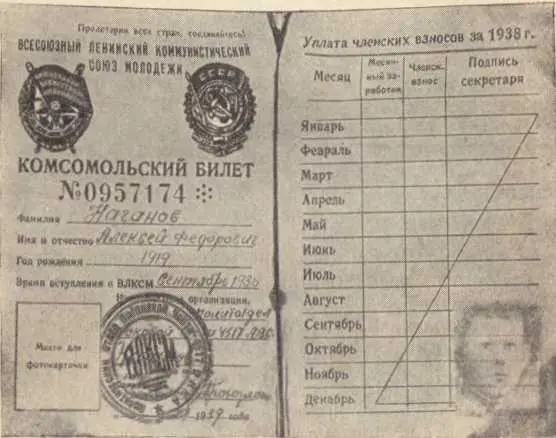 Пролетарии всех стран, соединяйтесь!
ВСЕСОЮЗНЫЙ ЛЕНИНСКИЙ КОММУНИСТИЧЕСКИЙ
СОЮЗ МОЛОДЕЖИ
СССР
КОМСОМОЛЬСКИЙ БИЛЕТ
№0957174
Фамилия Наганов
Имя и отчество Алексей Федорович
Год рождения 1919
Время вступления в ВЛКСМ Сентябрь 1936
организации,
Место для
фотокарточки
ВЛКСМ
1939 года
Уплата членских взносов за 1938 г.
Месяц
Месяч-
ный за-
работок
Членск.
взнос
Подпись
секретаря
Январь
Февраль
Март
Апрель
Май
Июнь
Июль
Август
Сентябрь
Октябрь
Ноябрь
Декабрь